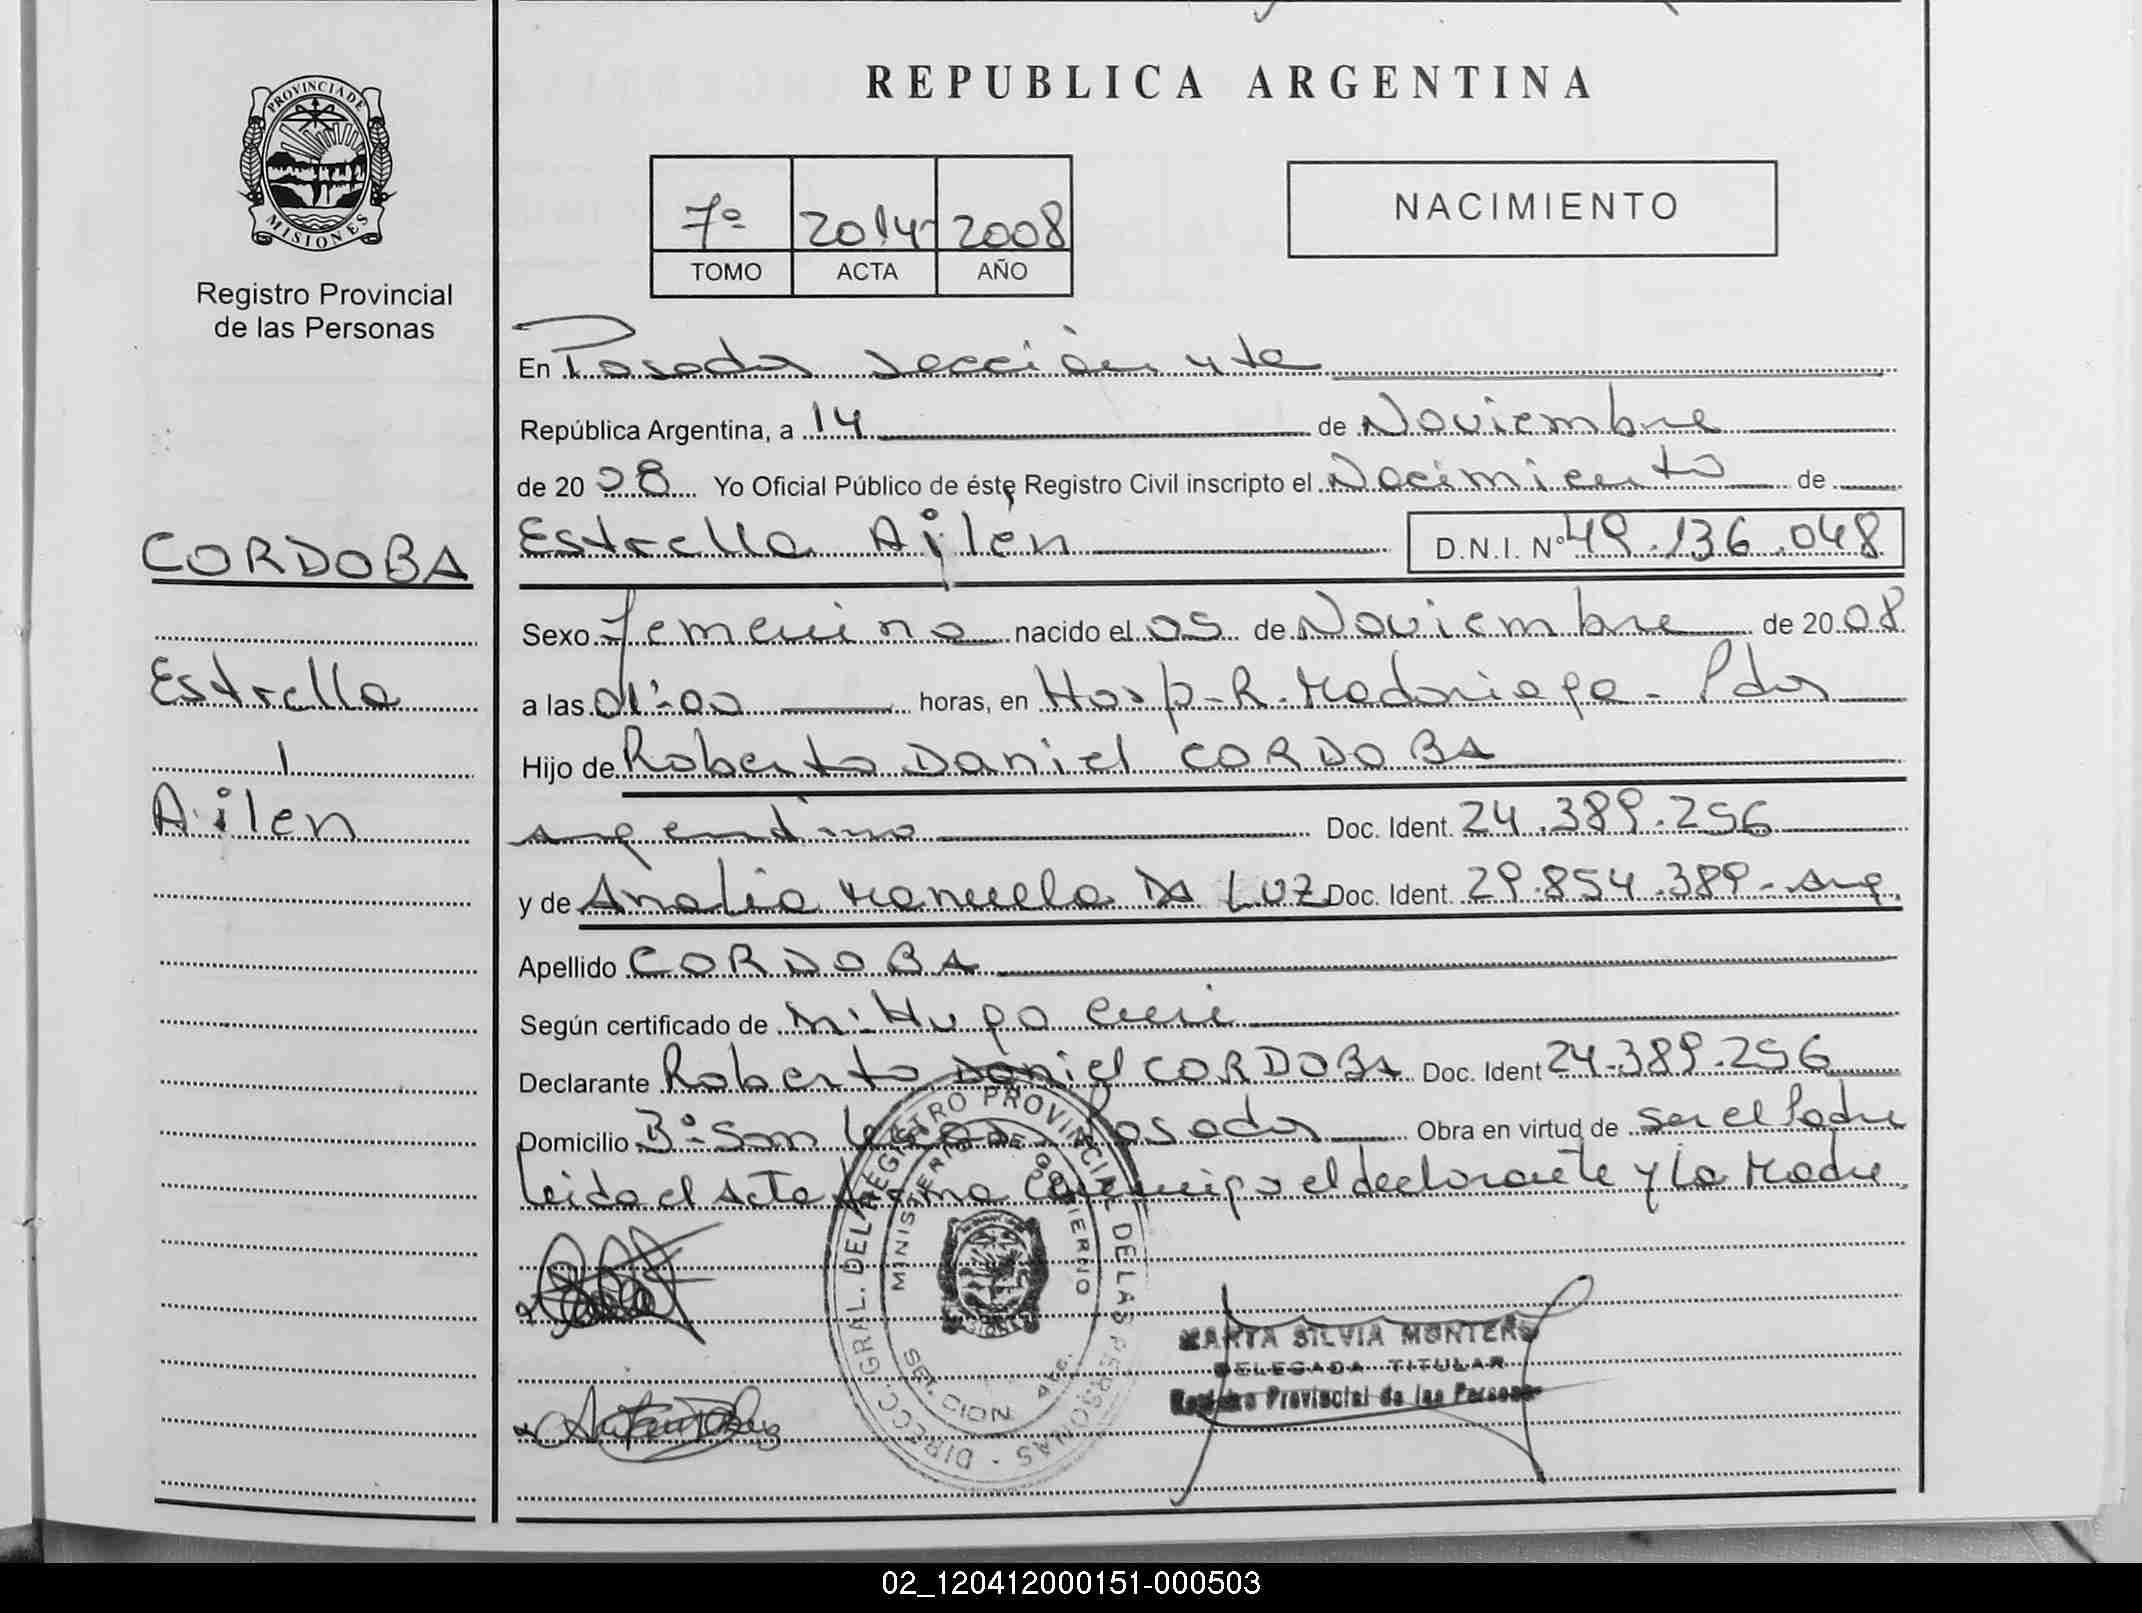 REPUBLICA ARGENTINA
PROVINCIA DE
MISIONES
Registro Provincial
de las Personas
7º 2014 2008
TOMO ACTA AÑO
NACIMIENTO
En Posadas Sección 4ta
República Argentina, a 14 de Noviembre
de 20 08 Yo Oficial Público de éste Registro Civil inscripto el Nacimiento de
CORDOBA
Estrella Ailén D.N.I. Nº 49.136.048
Sexo femenino nacido el 05 de Noviembre de 20 08
Estrella
a las 01:00 horas, en Hosp-R. Madariaga - Pdas
Hijo de Roberto Daniel CORDOBA
Ailen
argentino Doc. Ident. 24.389.256
y de Analia Manuela DA LUZ Doc. Ident. 29.854.389 - arg.
Apellido CORDOBA
Según certificado de Hugo
Declarante Roberto Daniel CORDOBA Doc. Ident 24.389.256
Domicilio Bº San Posadas Obra en virtud de ser el Padre
Leida el Acta firma conmigo el declarante y La Madre.
DIRECC. GRAL. DEL REGISTRO PROVINCIAL DE LAS PERSONAS
MINISTERIO DE GOBIERNO
MARTA SILVIA MONTERO
DELEGADA TITULAR
Registro Provincial de las Personas
02_120412000151-000503